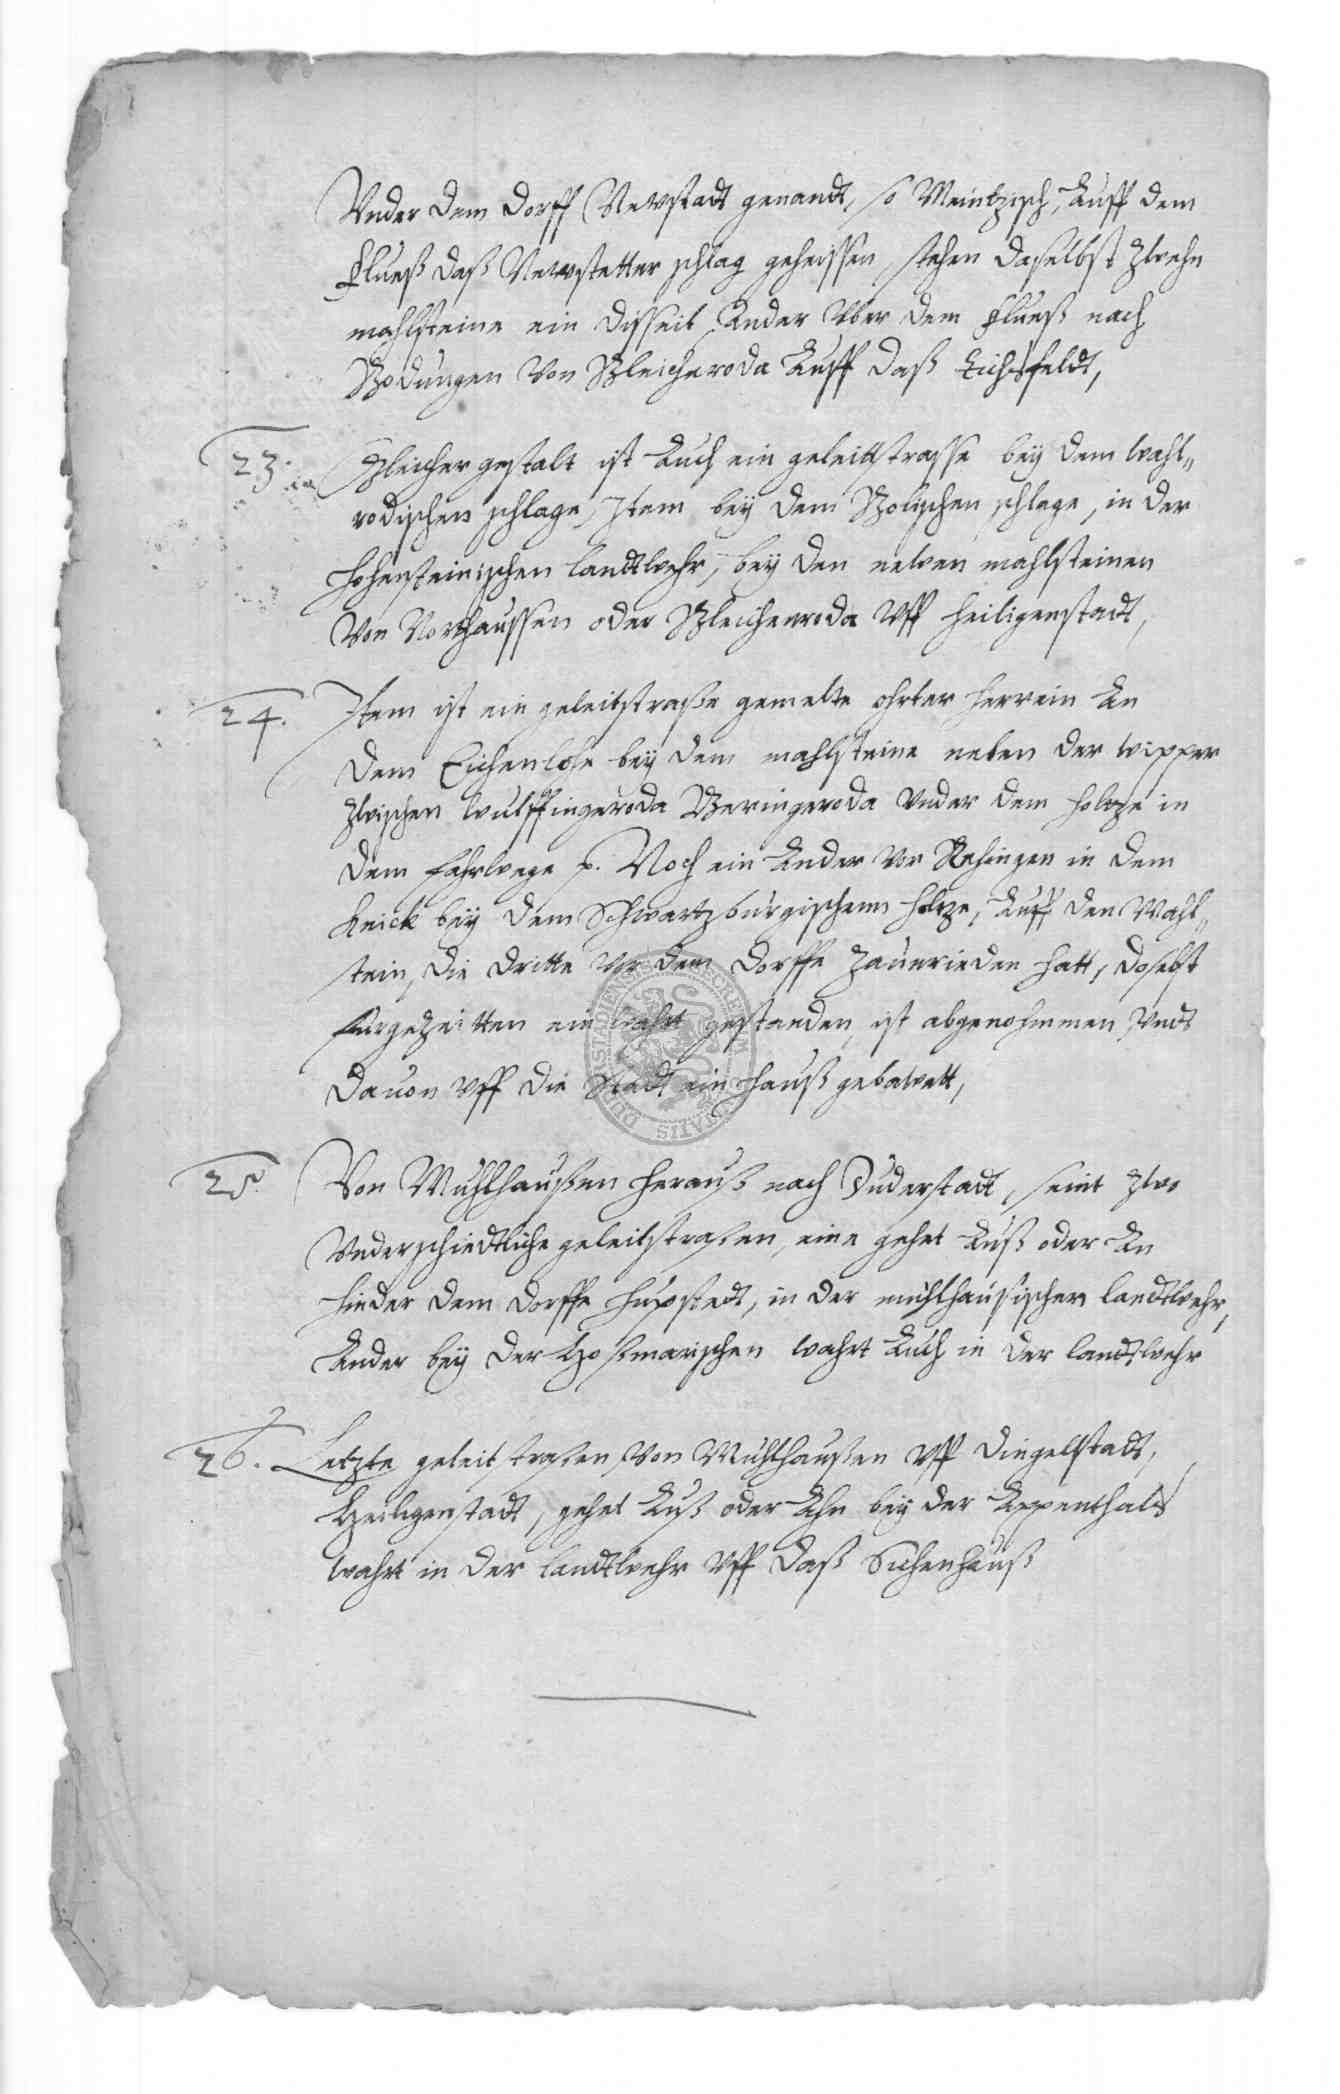 Vnder dem dorff Newstadt genandt, so Meintzisch, Auff dem
Flueß daß Newstetter schlag geheissen, stehen daselbst zwehn
mahlsteine ein disseit, Ander vber dem Flueß nach
Bodungen von Bleicheroda Auff daß Eichsfeldt,
23. Gleicher gestalt ist Auch ein geleittstrasse bey dem wahl„
rodischen schlage, Item bey dem Holischen schlage, in der
hohensteinischen landtwehr, bey den newen mahlsteinen
Von Northaussen oder Bleichenroda Vff heiligenstadt,
24. Item ist ein geleitstraße gemelte ohrter herrein An
dem Eichenlohe bey dem mahlsteine neben der wipper
zwischen wulffingeroda Beringeroda Vnder dem holtze in
dem fahrwege p. Noch ein Ander vor Rehingen in dem
kniick bey dem Schwartzburgischenn holtze, Auff den Mahl„
stein, die dritte vor dem dorffe Zaunrieden hatt, doselbst
furgezeitten ein wahrt gestanden, ist abgenohmmen Vndt
dauon vff die Stadt ein hauß gebawett,
25. Von Muhlhaußen herauß nach Duderstadt, seint zwo
Vnderschiedtliche geleitstraßen, eine gehet Auß oder An
hinder dem dorffe hupstedt, in der muhlhausischen landtwehr,
Ander bey der Hosmarischen wahrt Auch in der landtwehr
26. Letzte geleit straßen von Muhlhaußen vff dingelstadt,
Heiligenstadt, gehet Auß oder Ahn bey der Appenthals
wahrt in der landtwehr vff daß Sichenhauß